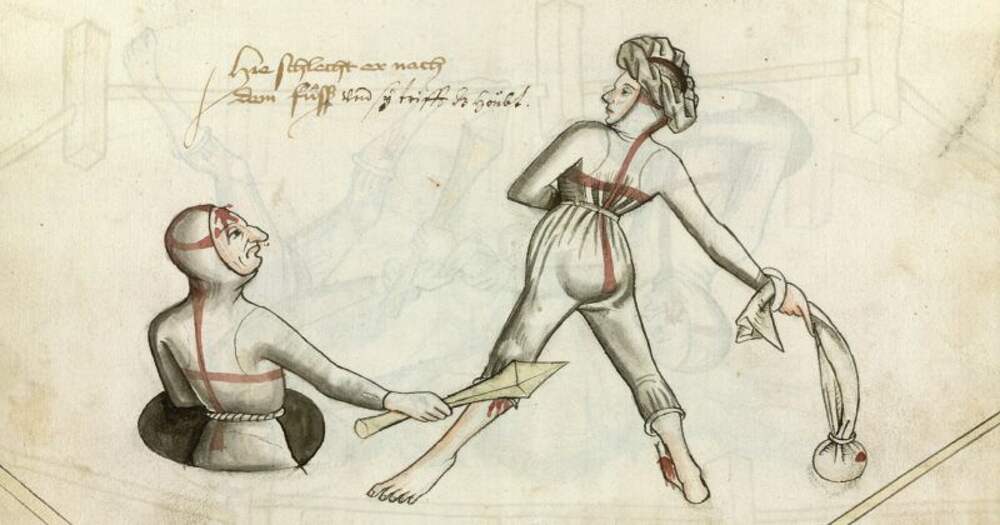 Hie schlecht er nach
dem füss und sy triff dz houbt.